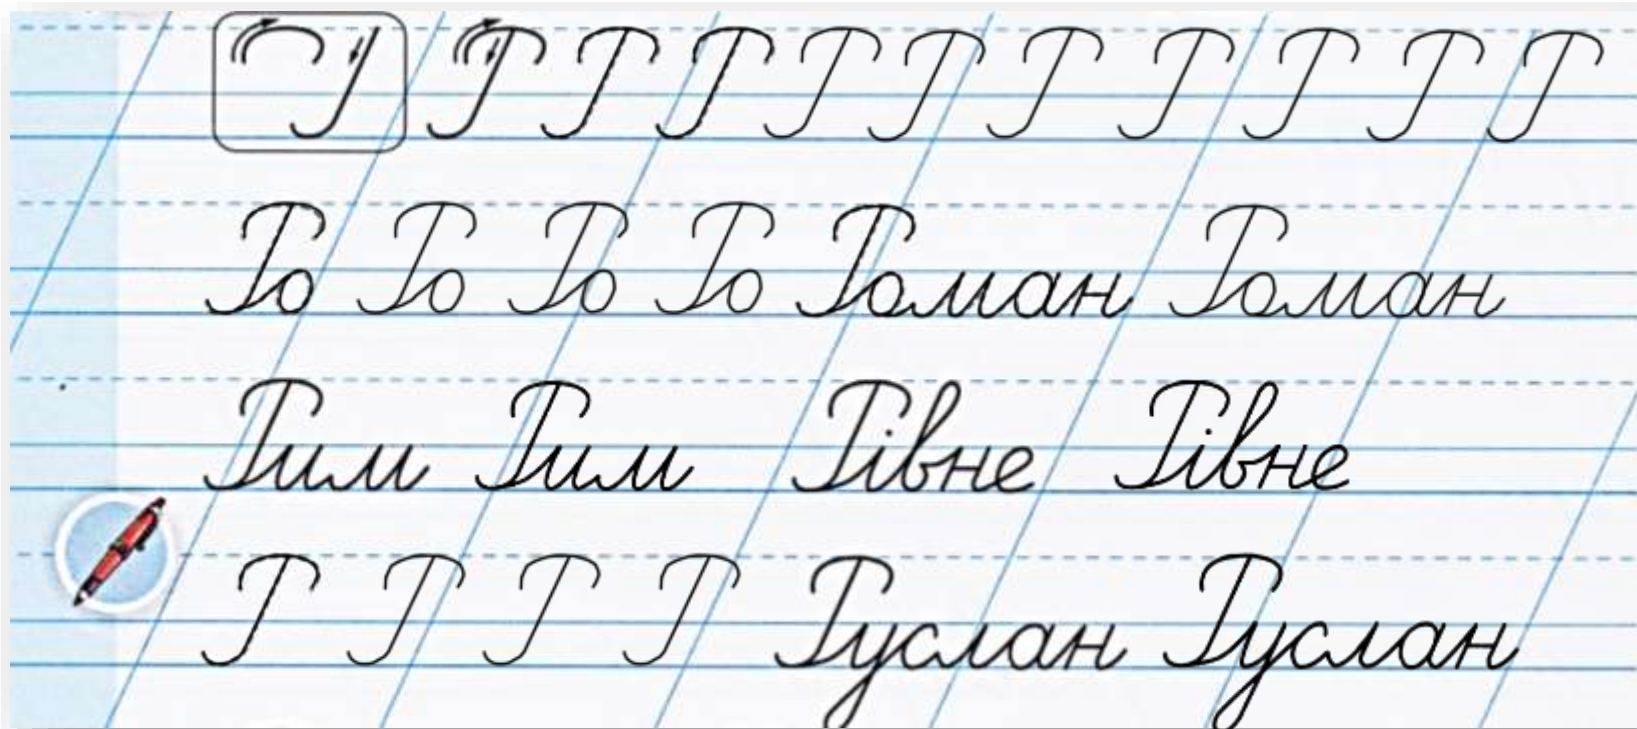 Р Р Р Р Р Р Р Р Р Р
Ро Ро Ро Ро Роман Роман
Рим Рим Рівне Рівне
Р Р Р Р Руслан Руслан